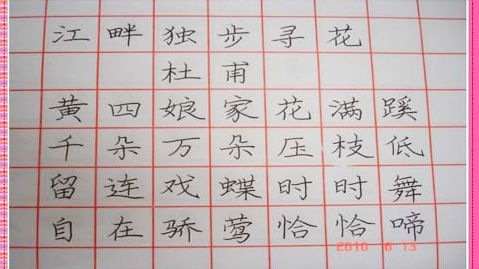 江畔独步寻花
杜甫
黄四娘家花满蹊
千朵万朵压枝低
留连戏蝶时时舞
自在骄莺恰恰啼
2010 6 13